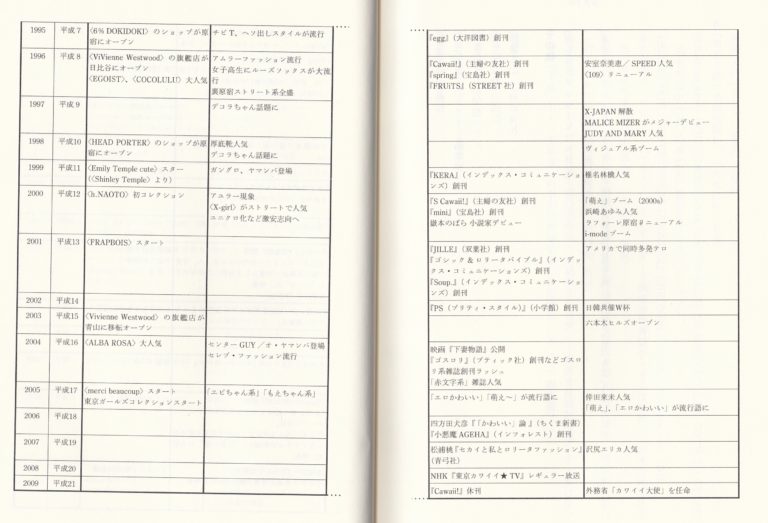 1995 平成7 〈6% DOKIDOKI〉のショップが原 チビT、ヘソ出しスタイルが流行
宿にオープン
1996 平成8 〈ViVienne Westwood〉の旗艦店が アムラーファッション流行
日比谷にオープン 女子高生にルーズソックスが大流
〈EGOIST〉、〈COCOLULU〉大人気 行
裏原宿ストリート系全盛
1997 平成9 デコラちゃん話題に
1998 平成10 〈HEAD PORTER〉のショップが原 厚底靴人気
宿にオープン デコラちゃん話題に
1999 平成11 〈Emily Temple cute〉スター ガングロ、ヤマンバ登場
(〈Shinley Temple〉より)
2000 平成12 〈h.NAOTO〉初コレクション アユラー現象
〈X-girl〉がストリートで人気
ユニクロ化など激安志向へ
2001 平成13 〈FRAPBOIS〉スタート
2002 平成14
2003 平成15 〈Vivienne Westwood〉の旗艦店が
青山に移転オープン
2004 平成16 〈ALBA ROSA〉大人気 センターGUY/オ・ヤマンバ登場
セレブ・ファッション流行
2005 平成17 〈merci beaucoup〉スタート 「エビちゃん系」「もえちゃん系」
東京ガールズコレクションスタート
2006 平成18
2007 平成19
2008 平成20
2009 平成21
『egg』(大洋図書)創刊
『Cawaii!』(主婦の友社)創刊 安室奈美恵/SPEED人気
『spring』(宝島社)創刊 〈109〉リニューアル
『FRUiTS』(STREET社)創刊
X-JAPAN 解散
MALICE MIZER がメジャーデビュー
JUDY AND MARY 人気
ヴィジュアル系ブーム
『KERA』(インデックス・コミュニケーショ 椎名林檎人気
ンズ)創刊
『S Cawaii!』(主婦の友社)創刊 「萌え」ブーム(2000s)
『mini』(宝島社)創刊 浜崎あゆみ人気
嶽本のばら 小説家デビュー ラフォーレ原宿リニューアル
i-mode ブーム
『JILLE』(双葉社)創刊 アメリカで同時多発テロ
『ゴシック&ロリータバイブル』(インデッ
クス・コミュニケーションズ)創刊
『Soup.』(インデックス・コミュニケーショ
ンズ)創刊
『PS(プリティ・スタイル)』(小学館)創刊 日韓共催W杯
六本木ヒルズオープン
映画『下妻物語』公開
『ゴスロリ』(ブティック社)創刊などゴスロ
リ系雑誌創刊ラッシュ
「赤文字系」雑誌人気
「エロかわいい」「萌え〜」が流行語に 倖田來未人気
「萌え」、「エロかわいい」が流行語に
四方田犬彦『「かわいい」論』(ちくま新書)
『小悪魔AGEHA』(インフォレスト)創刊
松浦桃『セカイと私とロリータファッション』 沢尻エリカ人気
(青弓社)
NHK『東京カワイイ★TV』レギュラー放送
『Cawaii!』休刊 外務省「カワイイ大使」を任命